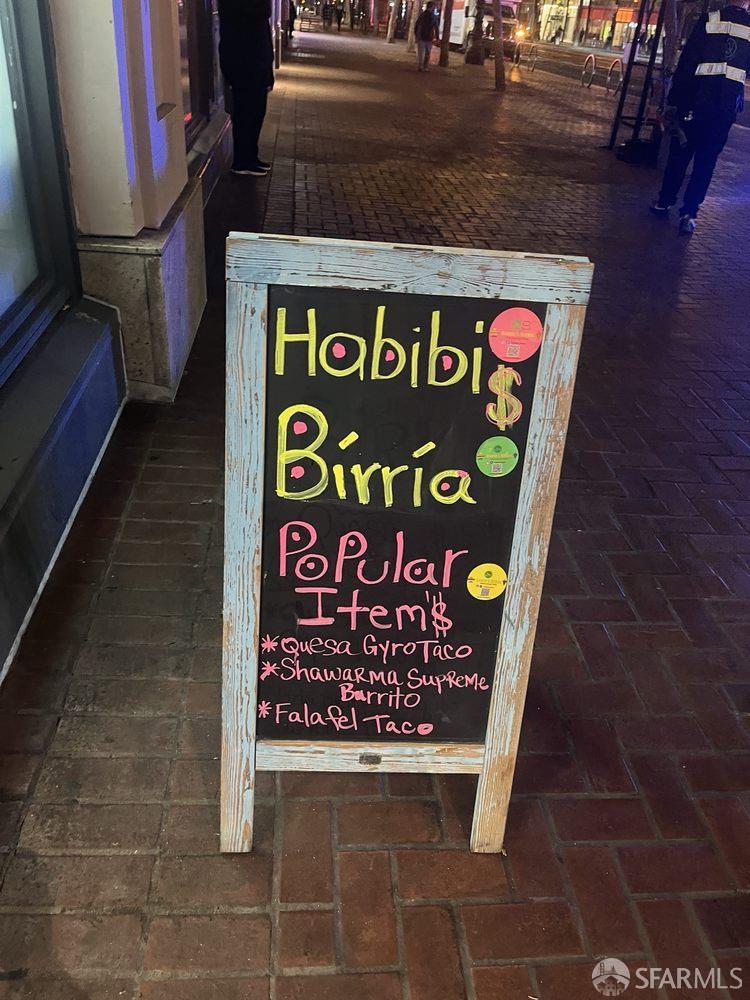 Habibi$
Bírría
Popular
Item'$
*Quesa Gyro Taco
*Shawarma Supreme
Burrito
*Falafel Taco
SFARMLS